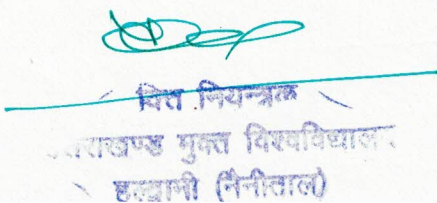 वित्त नियन्त्रक
उत्तराखण्ड मुक्त विश्वविद्यालय
हल्द्वानी (नैनीताल)